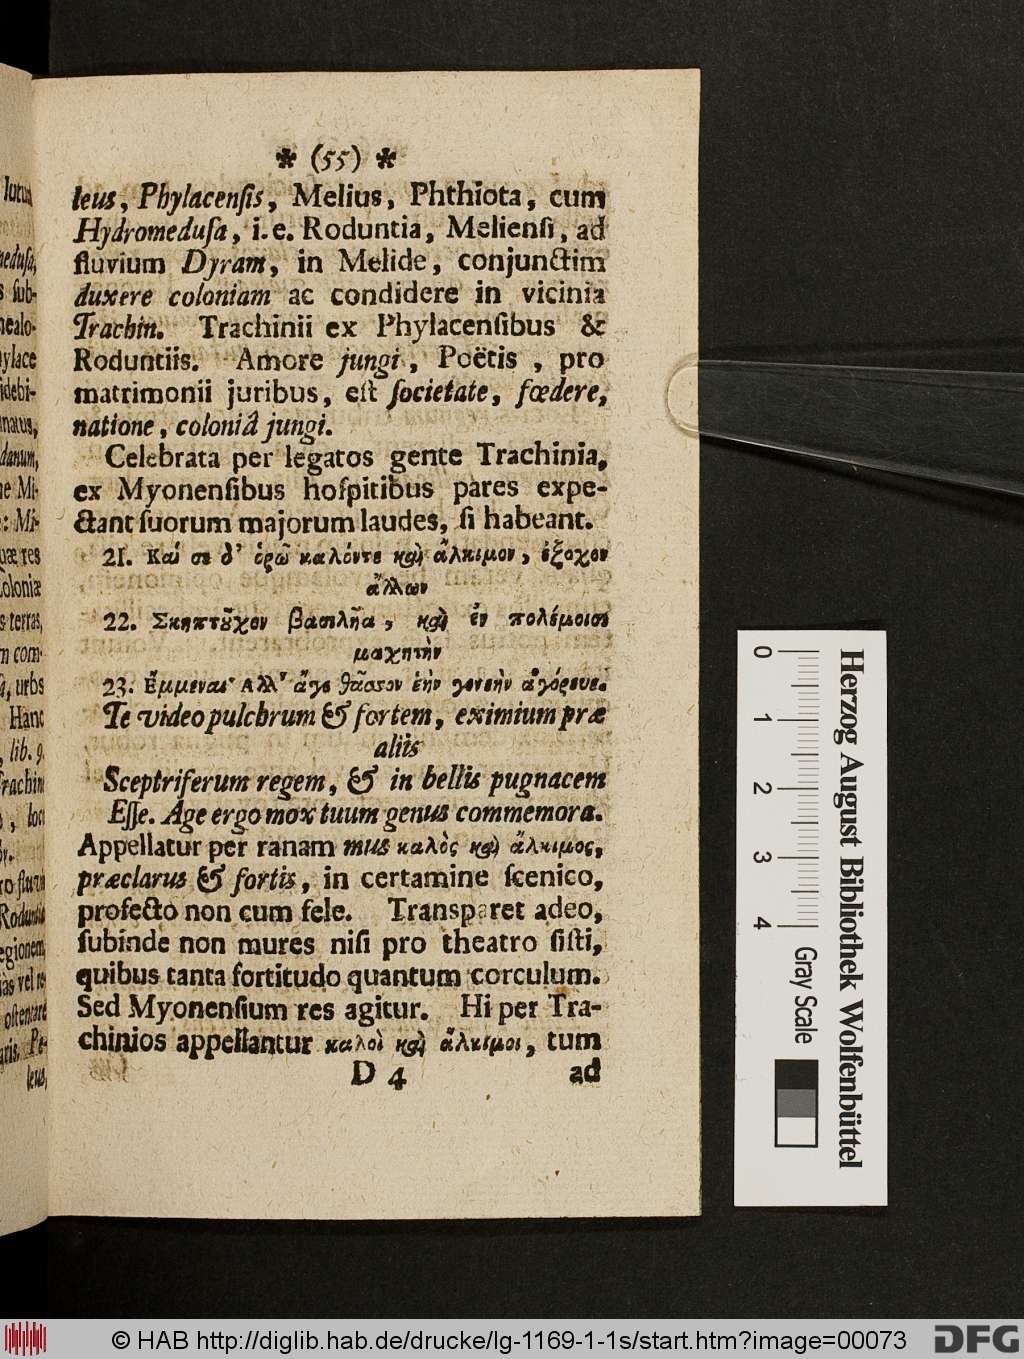 ✻ (55) ✻
leus, Phylacenſis, Melius, Phthiota, cum
Hydromeduſa, i. e. Roduntia, Melienſi, ad
fluvium Dyram, in Melide, conjunctim
duxere coloniam ac condidere in vicinia
Trachin. Trachinii ex Phylacenſibus &
Roduntiis. Amore jungi, Poëtis, pro
matrimonii juribus, eſt ſocietate, fœdere,
natione, coloniâ jungi.
Celebrata per legatos gente Trachinia,
ex Myonenſibus hoſpitibus pares expe-
ctant ſuorum majorum laudes, ſi habeant.
21. Καί σε δ' ὁρῶ καλόντε καὶ ἄλκιμον, ἐξοχον
ἄλλων
22. Σκηπτȣ͂χον βασιλῆα, καὶ ἐν πολέμοισι
μαχητὴν
23. Ἔμμεναι· Αλλ' ἄγε θᾶσσον ἑὴν γενεὴν ἀγόρευε.
Te video pulchrum & fortem, eximium præ
aliis
Sceptriferum regem, & in bellis pugnacem
Eſſe. Age ergo mox tuum genus commemora.
Appellatur per ranam mus καλὸς καὶ ἄλκιμος,
præclarus & fortis, in certamine ſcenico,
profecto non cum fele. Transparet adeo,
ſubinde non mures niſi pro theatro ſiſti,
quibus tanta fortitudo quantum corculum.
Sed Myonenſium res agitur. Hi per Tra-
chinios appellantur καλοὶ καὶ ἄλκιμοι, tum
D 4 ad
meduſa,
ſub-
nealo-
ylace
idebi-
natus,
danum,
ne Mi-
: Mi-
quæ res
Coloniæ
s terras,
m com-
urbs
Hanc
lib. 9.
Trachin
loci
Roduntia
regionem
vel
oſtentare
Pe-
leus,
0 1 2 3 4
Gray Scale
Herzog August Bibliothek Wolfenbüttel
© HAB http://diglib.hab.de/drucke/lg-1169-1-1s/start.htm?image=00073
DFG